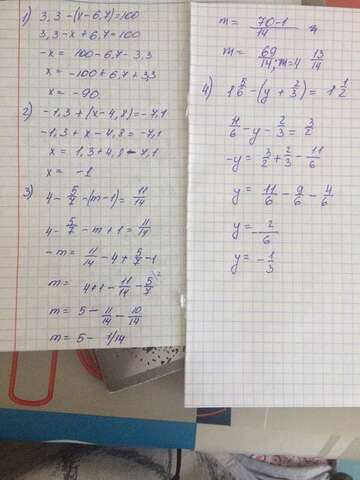 1) 3,3 - (x - 6,7) = 100
3,3 - x + 6,7 = 100
-x = 100 - 6,7 - 3,3
x = -100 + 6,7 + 3,3
x = -90.
2) -1,3 + (x - 4,8) = -7,1
-1,3 + x - 4,8 = -7,1
x = 1,3 + 4,8 - 7,1
x = -1
3) 4 - 5/7 - (m - 1) = 11/14
4 - 5/7 - m + 1 = 11/14
-m = 11/14 - 4 + 5/7 - 1
m = 4 + 1 - 11/14 - 5/7 ²
m = 5 - 11/14 - 10/14
m = 5 - 1/14
m = 70 - 1/14
m = 69/14; m = 4 13/14
4) 1 5/6 - (y + 2/3) = 1 1/2
11/6 - y - 2/3 = 3/2
-y = 3/2 + 2/3 - 11/6
y = 11/6 - 9/6 - 4/6
y = - 2/6
y = - 1/3